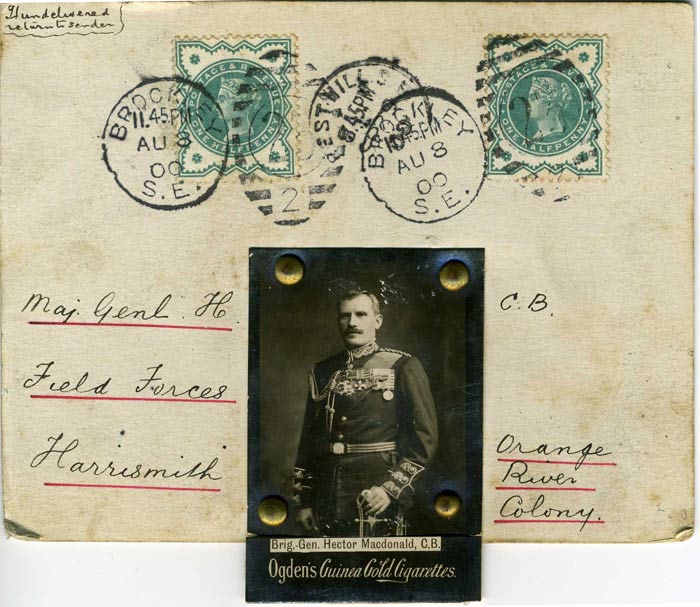 If undelivered
return to sender
POSTAGE & REVENUE
ONE HALFPENNY
POSTAGE & REVENUE
ONE HALFPENNY
BROCKLEY
11.45PM
AU 8
00
S.E.
2
8.45PM
BROCKLEY
11.45PM
AU 8
00
S.E.
2
Maj. Genl. H.
C.B.
Field Forces
Harrismith
Orange
River
Colony.
Brig.-Gen. Hector Macdonald, C.B.
Ogden's Guinea Gold Cigarettes.